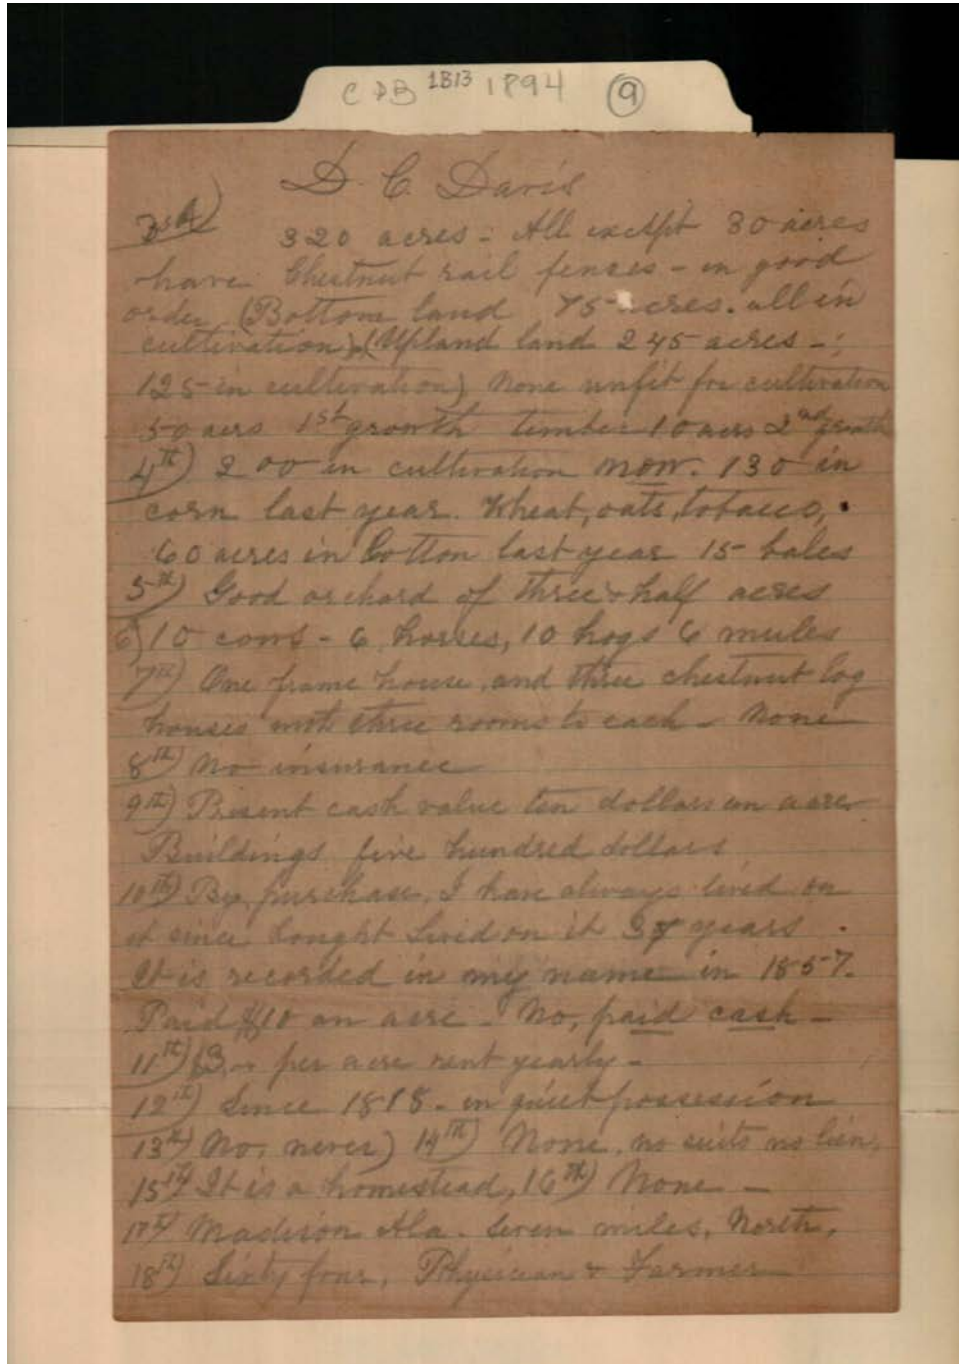 CDB 1B13 1894 9
D. C. Davis
3rd) 320 acres - All except 30 acres
have Chestnut rail fences - in good
order (Bottom land 75 acres. all in
cultivation) (Upland land 245 acres - ;
125 in cultivation) None unfit for cultivation
50 acrs 1st growth timber 10 acrs 2nd growth
4th) 200 in cultivation now. 130 in
corn last year. Wheat, oats, tobacco,
60 acres in Cotton last year 15 bales
5th) Good orchard of three & half acres
6) 10 cows - 6 horses, 10 hogs 6 mules
7th) One frame house, and three chestnut log
houses with three rooms to each - None
8th) No insurance
9th) Present cash value ten dollars an acre
Buildings five hundred dollars
10th) By purchase, I have always lived on
it since bought Lived on it 37 years
It is recorded in my name in 1857.
Paid $10 an acre - No, paid cash -
11th) per acre rent yearly -
12th) Since 1818 - in quiet possession
13th) No, never) 14th) None, no suits no lien,
15th) It is a homestead, 16th) None -
17th) Madison Ala. Seven miles, North,
18th) Sixty four, Physician & Farmer